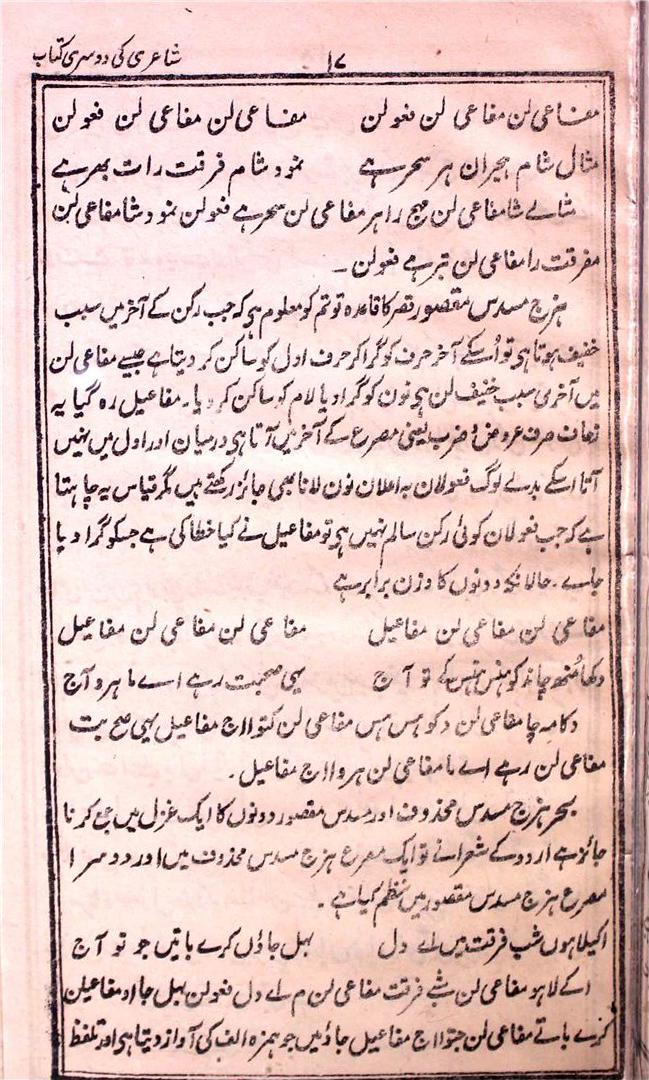 شاعری کی دوسری کتاب
۱۷
مفاعی لن مفاعی لن فعولن مفاعی لن مفاعی لن فعولن
مثال شام ہجران ہر سحر ہے نمود شام فرقت رات بھر ہے
مثالے شا مفاعی لن مہج را ہر مفاعی لن سحر ہے فعولن نمود شا مفاعی لن
مفرقت را مفاعی لن تبر ہے فعولن ۔
ہزج مسدس مقصور قصر کا قاعدہ تو تم کو معلوم ہی کہ جب رکن کے آخر میں سبب
خفیف ہوتا ہی تو اُسکے آخر حرف کو گرا کر حرف اول کو ساکن کر دیتا ہے جیسے مفاعی لن
میں آخری سبب خفیف لن ہی نون کو گرا دیا لام کو ساکن کر دیا ۔ مفاعیل رہ گیا یہ
زحاف صرف عروض و ضرب یعنی مصرع کے آخر میں آتا ہی درمیان اور اول میں نہیں
آتا اسکے بدلے لوگ فعولان بہ اعلان نون لانا بھی جائز رکھتے ہیں مگر قیاس یہ چاہتا
ہے کہ جب فعولان کوئی رکن سالم نہیں ہی تو مفاعیل نے کیا خطا کی ہے جسکو گرا دیا
جائے ۔ حالانکہ دونوں کا وزن برابر ہے
مفاعی لن مفاعی لن مفاعیل مفاعی لن مفاعی لن مفاعیل
دکھا مُنھ چاند کو ہنس ہنس کے تو آج یہی صحبت رہے اے ماہرو آج
دکامہ چا مفاعی لن دکو ہس ہس مفاعی لن کتو ااج مفاعیل یہی صح بت
مفاعی لن رہے اے ما مفاعی لن ہرو ااج مفاعیل ۔
بحر ہزج مسدس محذوف اور مسدس مقصور دونوں کا ایک غزل میں جمع کرنا
جائز ہے اردو کے شعرا نے تو ایک مصرع ہزج مسدس محذوف میں اور دوسرا
مصرع ہزج مسدس مقصور میں نظم کیا ہے ۔
اکیلا ہوں شب فرقت میں اے دل بہل جاؤں کرے باتیں جو تو آج
اکے لا ہو مفاعی لن شبے فرقت مفاعی لن م اے دل فعولن بہل جا او مفاعیلن
کرے باتے مفاعی لن جتو ااج مفاعیل جاؤ میں جو ہمزہ الف کی آواز دیتا ہی اور تلفظ